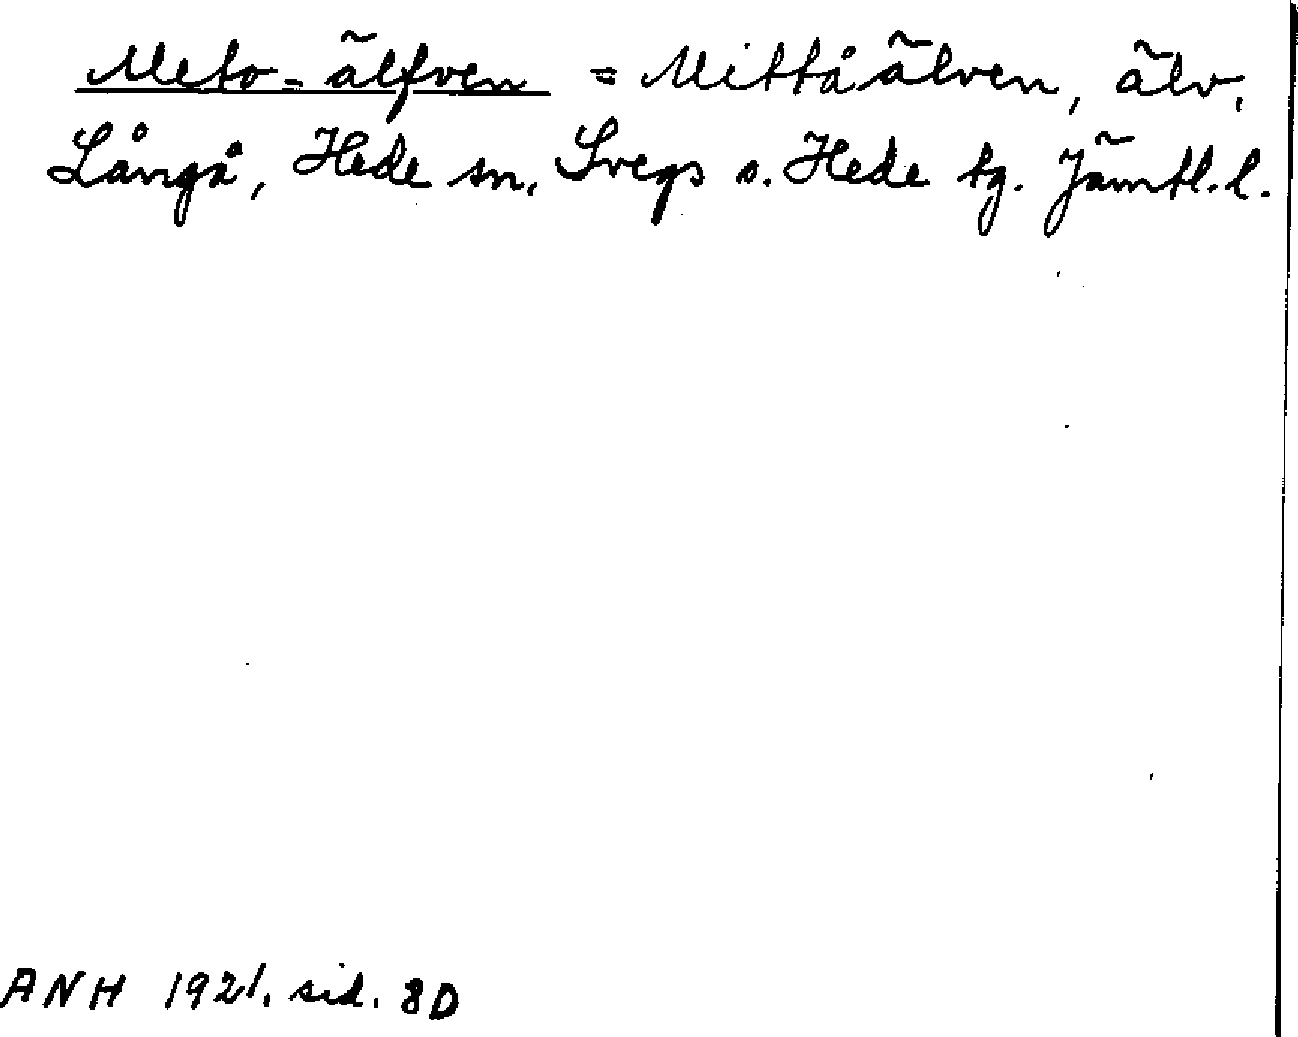 Meto-älfven = Mittåälven, älv,
Långå, Hede sn, Svegs o. Hede tg. Jämtl. l.
ANH 1921. sid. 80